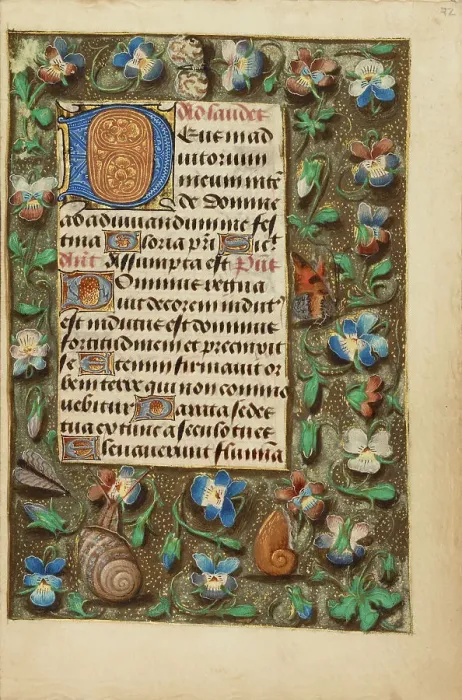 72
Ad laudes
Deus in ad
iutorium
meum inte
de Domine
ad adiuuandum me fes
tina Gloria p̃ri Sic̃
Ant̃ Assumpta est Ps̃
Dominus regna
uit decorem indut⁹
est indutus est dominus
fortitudinem et precinxit
se Etenim firmauit or
bem terre qui non commo
uebitur Parata sedes
tua ex tunc a seculo tu es
Eleuauerunt flumina